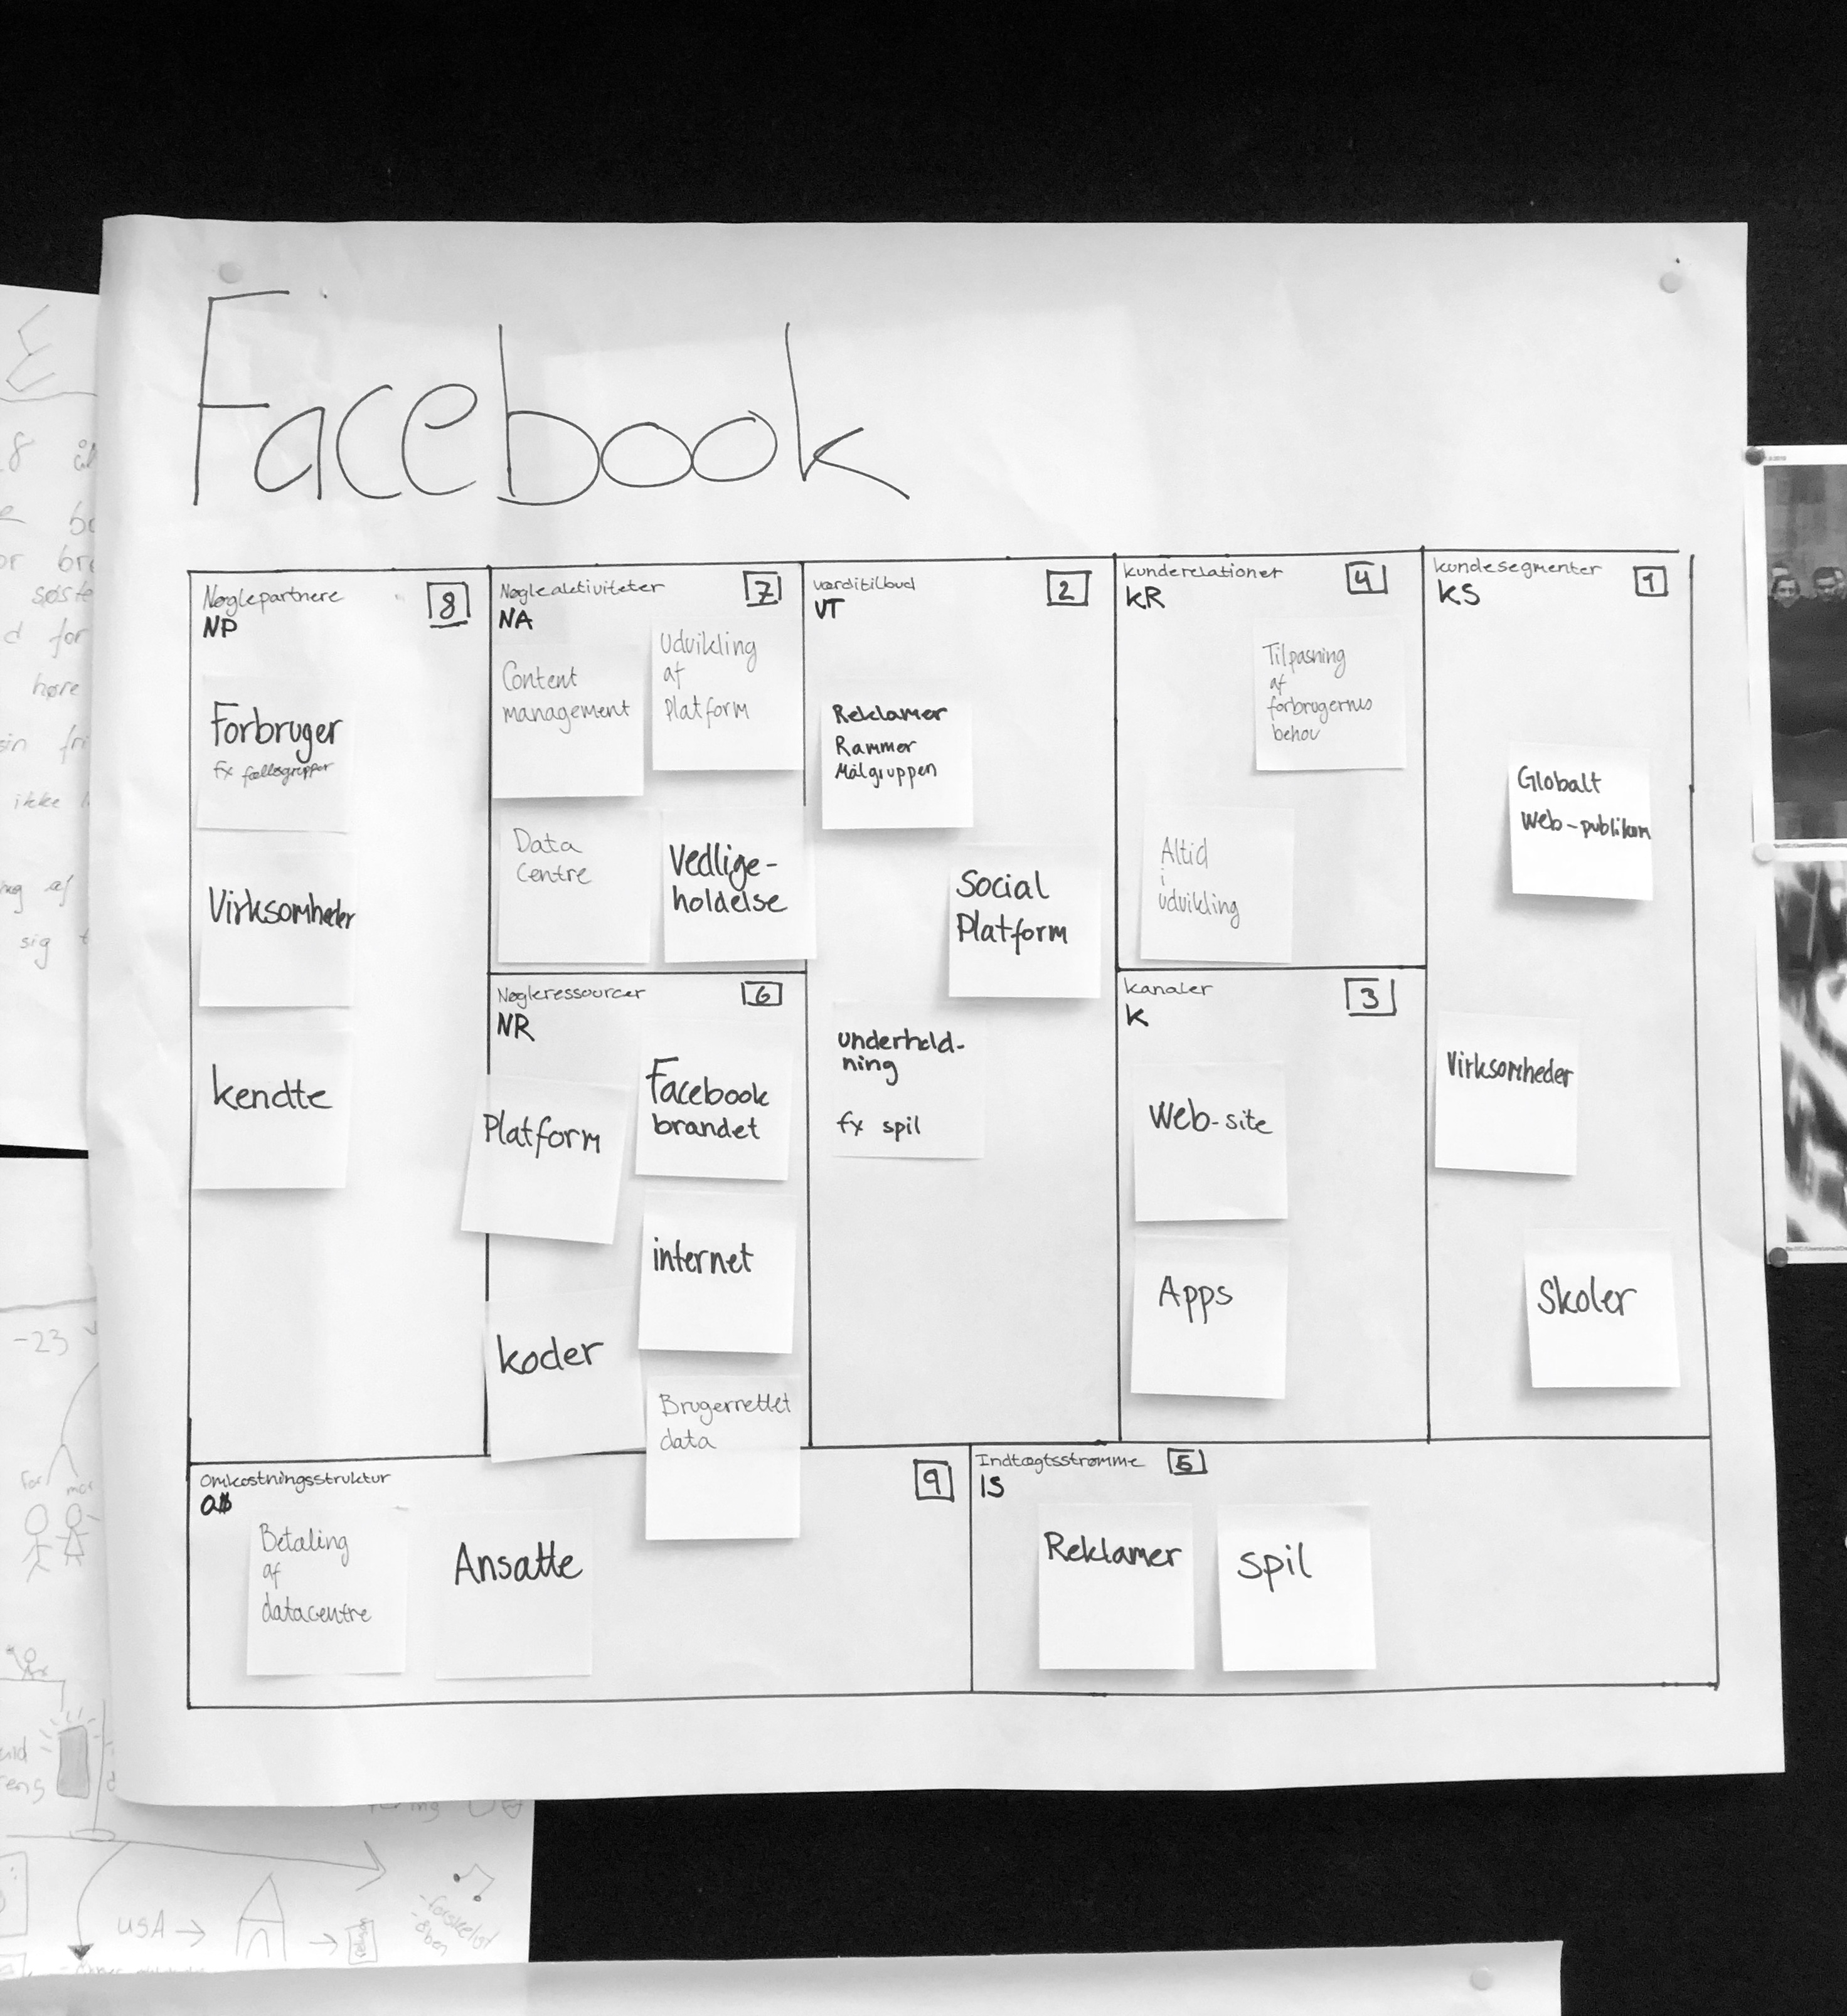 Facebook
Nøglepartnere
NP
8
Forbruger
fx fællesgrupper
Virksomheder
kendte
Nøgleaktiviteter
NA
7
Content
management
Udvikling
af
Platform
Data
Centre
Vedlige-
holdelse
Nøgleressourcer
NR
6
Platform
Facebook
brandet
internet
koder
Brugerrettet
data
værditilbud
VT
2
Reklamer
Rammer
Målgruppen
Social
Platform
underhold-
ning
fx spil
kunderelationer
KR
4
Tilpasning
af
forbrugernes
behov
Altid
i
udvikling
kanaler
K
3
Web-site
Apps
kundesegmenter
KS
1
Globalt
Web-publikum
Virksomheder
Skoler
Omkostningsstruktur
9
Betaling
af
datacentre
Ansatte
Indtægtsstrømme
5
IS
Reklamer
spil
8
søste
d for
høre
sin fri
ikke
ng af
sig
-23
For
mor
USA →